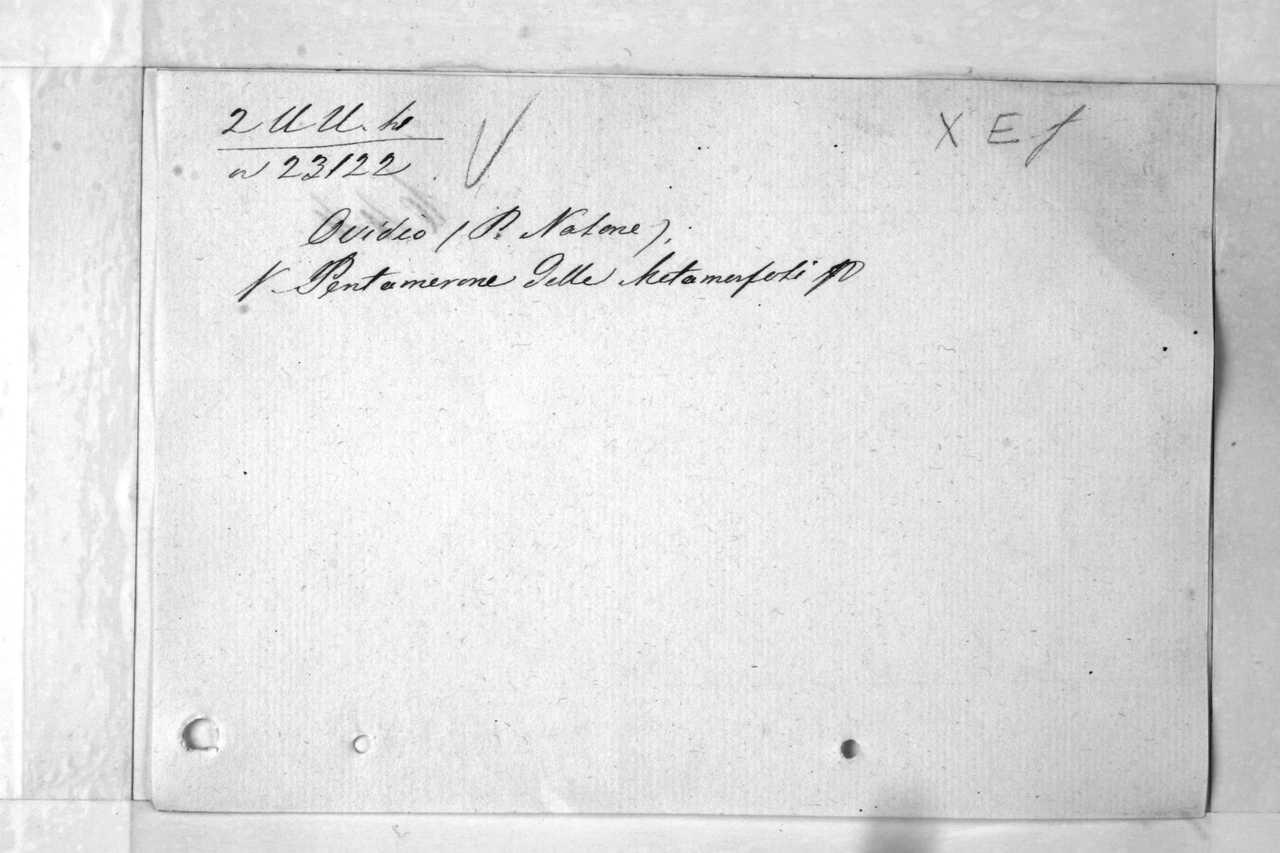 2 U U. h
n 23122
X E f
Ovidio (P. Natone),
V. Pentamerone delle Metamorfosi p